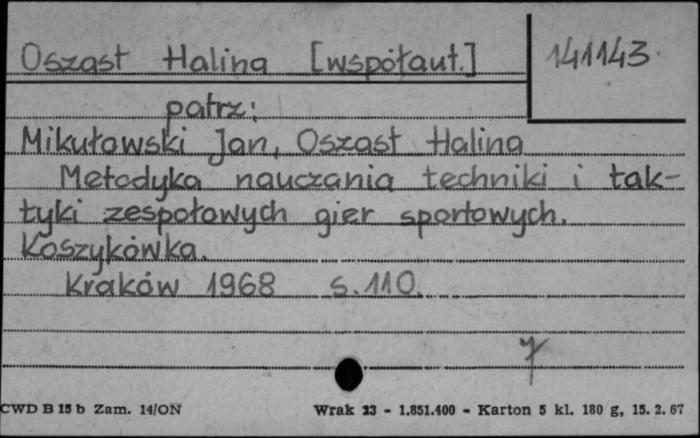 Osząst Halina [współaut.]
141143
patrz:
Mikułowski Jan, Osząst Halina
Metodyka nauczania techniki i tak-
tyki zespołowych gier sportowych.
Koszykówka.
Kraków 1968 s. 110.
7
CWD B 15 b Zam. 14/ON Wrak 23 - 1.851.400 - Karton 5 kl. 180 g, 15. 2. 67